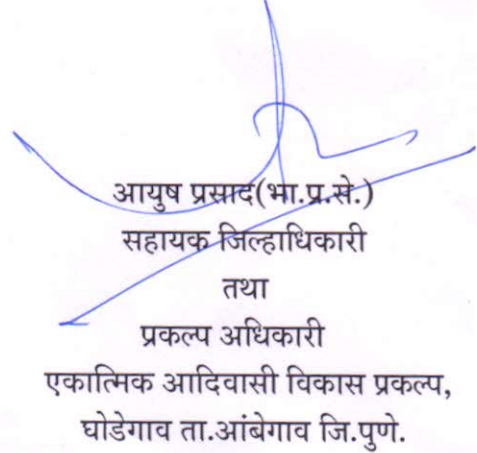 आयुष प्रसाद(भा.प्र.से.)
सहायक जिल्हाधिकारी
तथा
प्रकल्प अधिकारी
एकात्मिक आदिवासी विकास प्रकल्प,
घोडेगाव ता.आंबेगाव जि.पुणे.